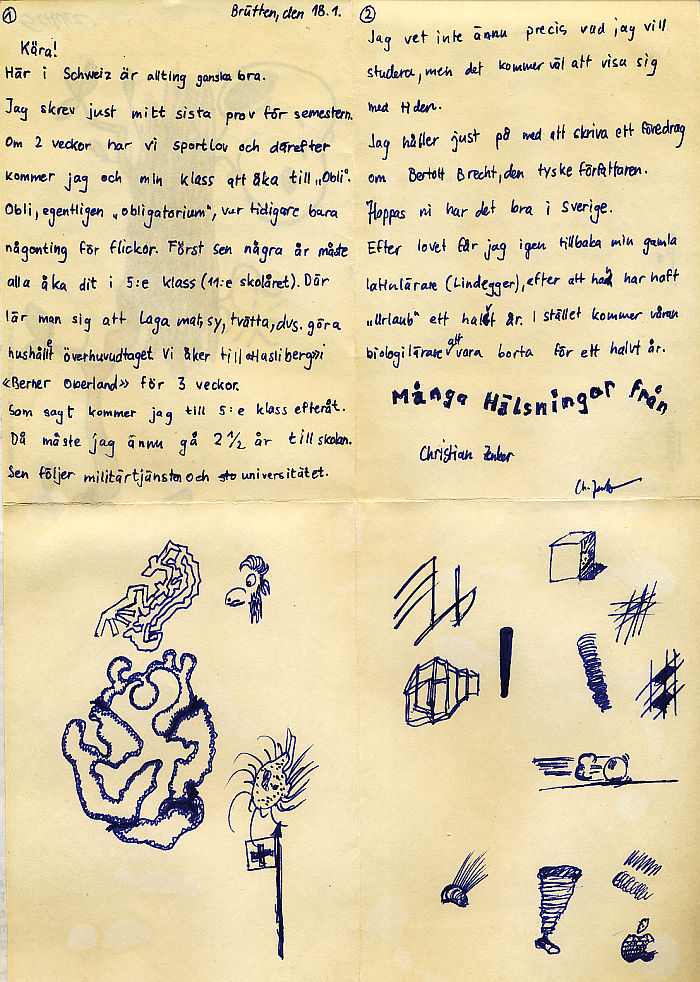 1
Brütten, den 18.1.
Kära!
Här i Schweiz är allting ganska bra.
Jag skrev just mitt sista prov för semestern.
Om 2 veckor har vi sportlov och därefter
kommer jag och min klass att åka till „Obli".
Obli, egentligen „obligatorium", var tidigare bara
någonting för flickor. Först sen några år måste
alla åka dit i 5:e klass (11:e skolåret). Där
lär man sig att laga mat, sy, tvätta, dvs. göra
hushållet överhuvudtaget. Vi åker till «Hasliberg» i
«Berner Oberland» för 3 veckor.
Som sagt kommer jag till 5:e klass efteråt.
Då måste jag ännu gå 2 1/2 år till skolan.
Sen följer militärtjänsten och universitätet.
2
Jag vet inte ännu precis vad jag vill
studera, men det kommer väl att visa sig
med tiden.
Jag håller just på med att skriva ett föredrag
om Bertolt Brecht, den tyske författaren.
Hoppas ni har det bra i Sverige.
Efter lovet får jag igen tillbaka min gamla
latinlärare (Lindegger), efter att han har haft
„Urlaub" ett halvt år. I stället kommer våran
biologilärare att vara borta för ett halvt år.
Många Hälsningar från
Christian